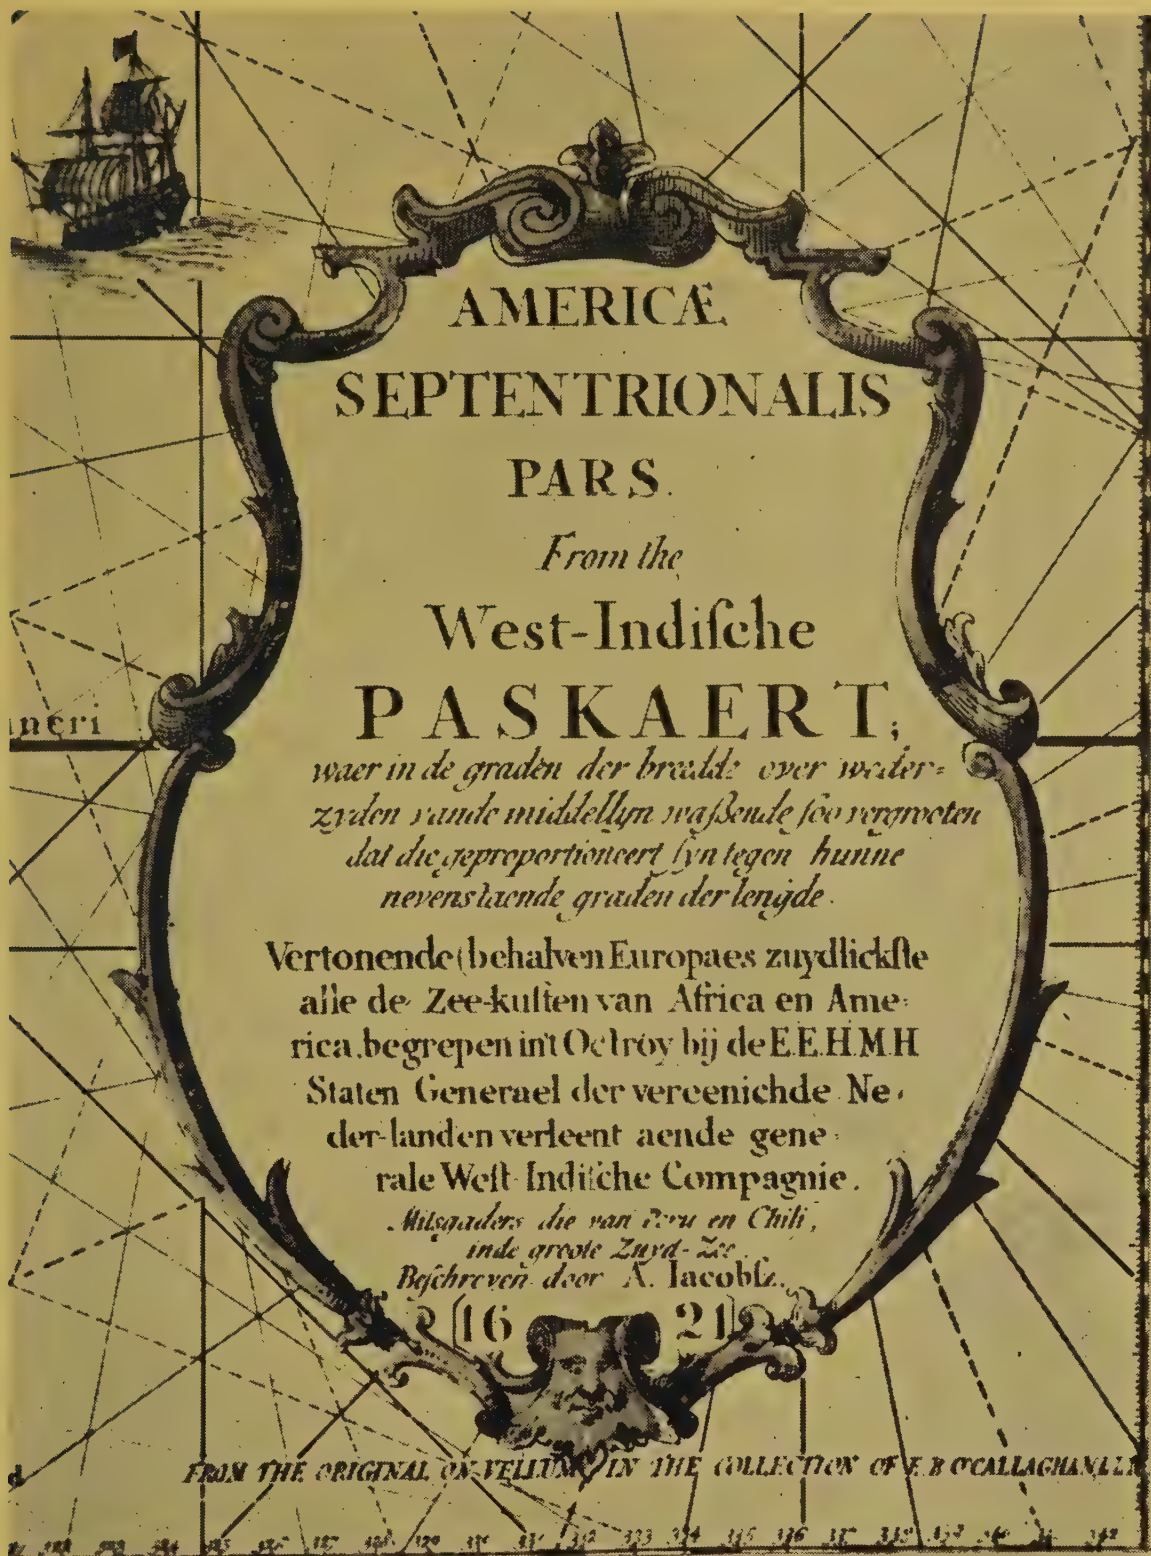 AMERICÆ
SEPTENTRIONALIS
PARS.
From the
West-Indiſche
PASKAERT;
waer in de graden der breedde over weder=
zyden vande middellyn waßende ſoo vergrooten
dat die geproportioneert ſyn tegen hunne
nevenstaende graden der lengde.
Vertonende (behalven Europaes zuydlickſte
alle de Zee-kuſten van Africa en Ame=
rica, begrepen in't Octroy bij de E.E.H.M.H
Staten Generael der vereenichde Ne=
der-landen verleent aende gene=
rale Weſt-Indiſche Compagnie.
Mitsgaders die van Peru en Chili,
inde groote Zuyd-Zee.
Beſchreven door A. Iacobſz.
(16 21)
ncri
d
FROM THE ORIGINAL ON VELLUM IN THE COLLECTION OF E B O'CALLAGHAN, LL